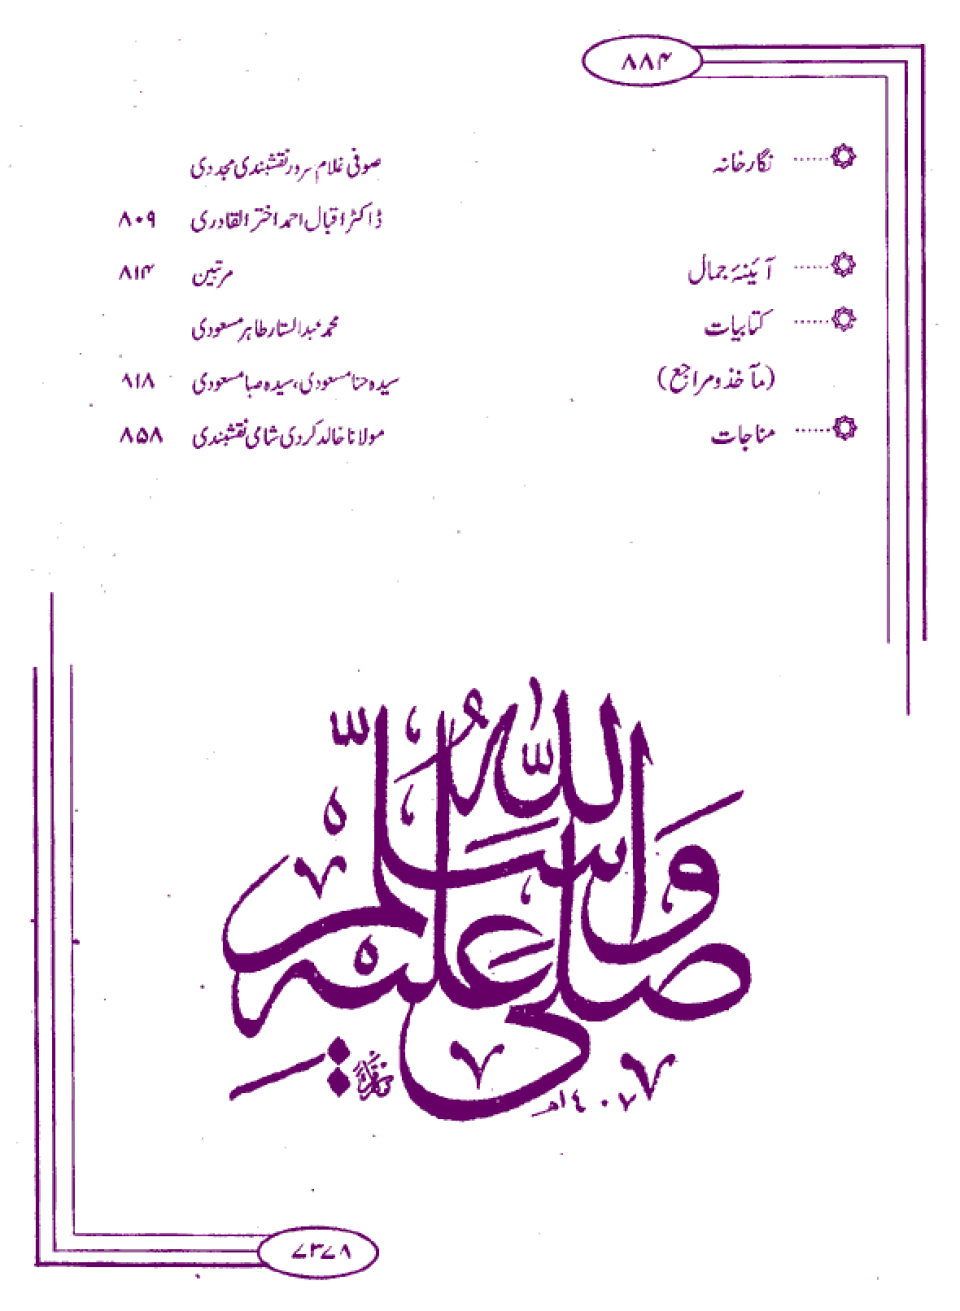 ۸۸۴
نگارخانہ ...... صوفی غلام سرور نقشبندی مجددی
ڈاکٹر اقبال احمد اختر القادری ۸۰۹
آئینۂ جمال ...... مرتبین ۸۱۴
کتابیات ...... محمد عبدالستار طاہر مسعودی
(مآخذ و مراجع) سیدہ حنا مسعودی، سیدہ صبا مسعودی ۸۱۸
مناجات ...... مولانا خالد کردی شامی نقشبندی ۸۵۸
صلى الله عليه وسلم
١٤٠٧ھ
۷۳۷۸